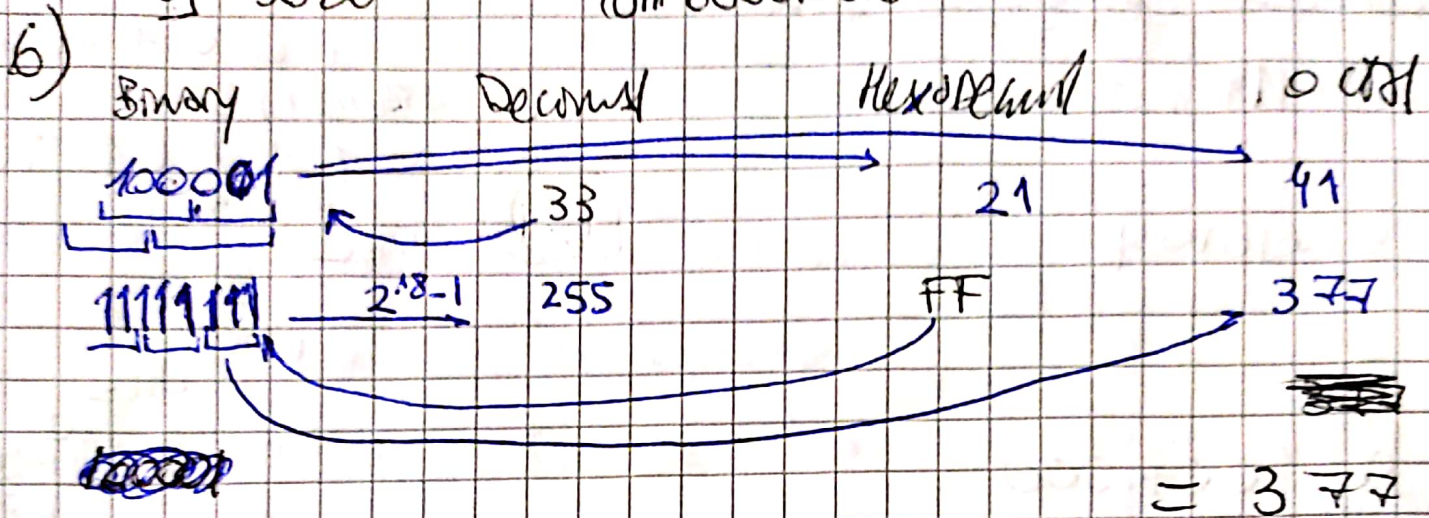 6)
Binary Decimal Hexadecimal Octal
100001 33 21 41
11111111 2^8-1 255 FF 377
= 377